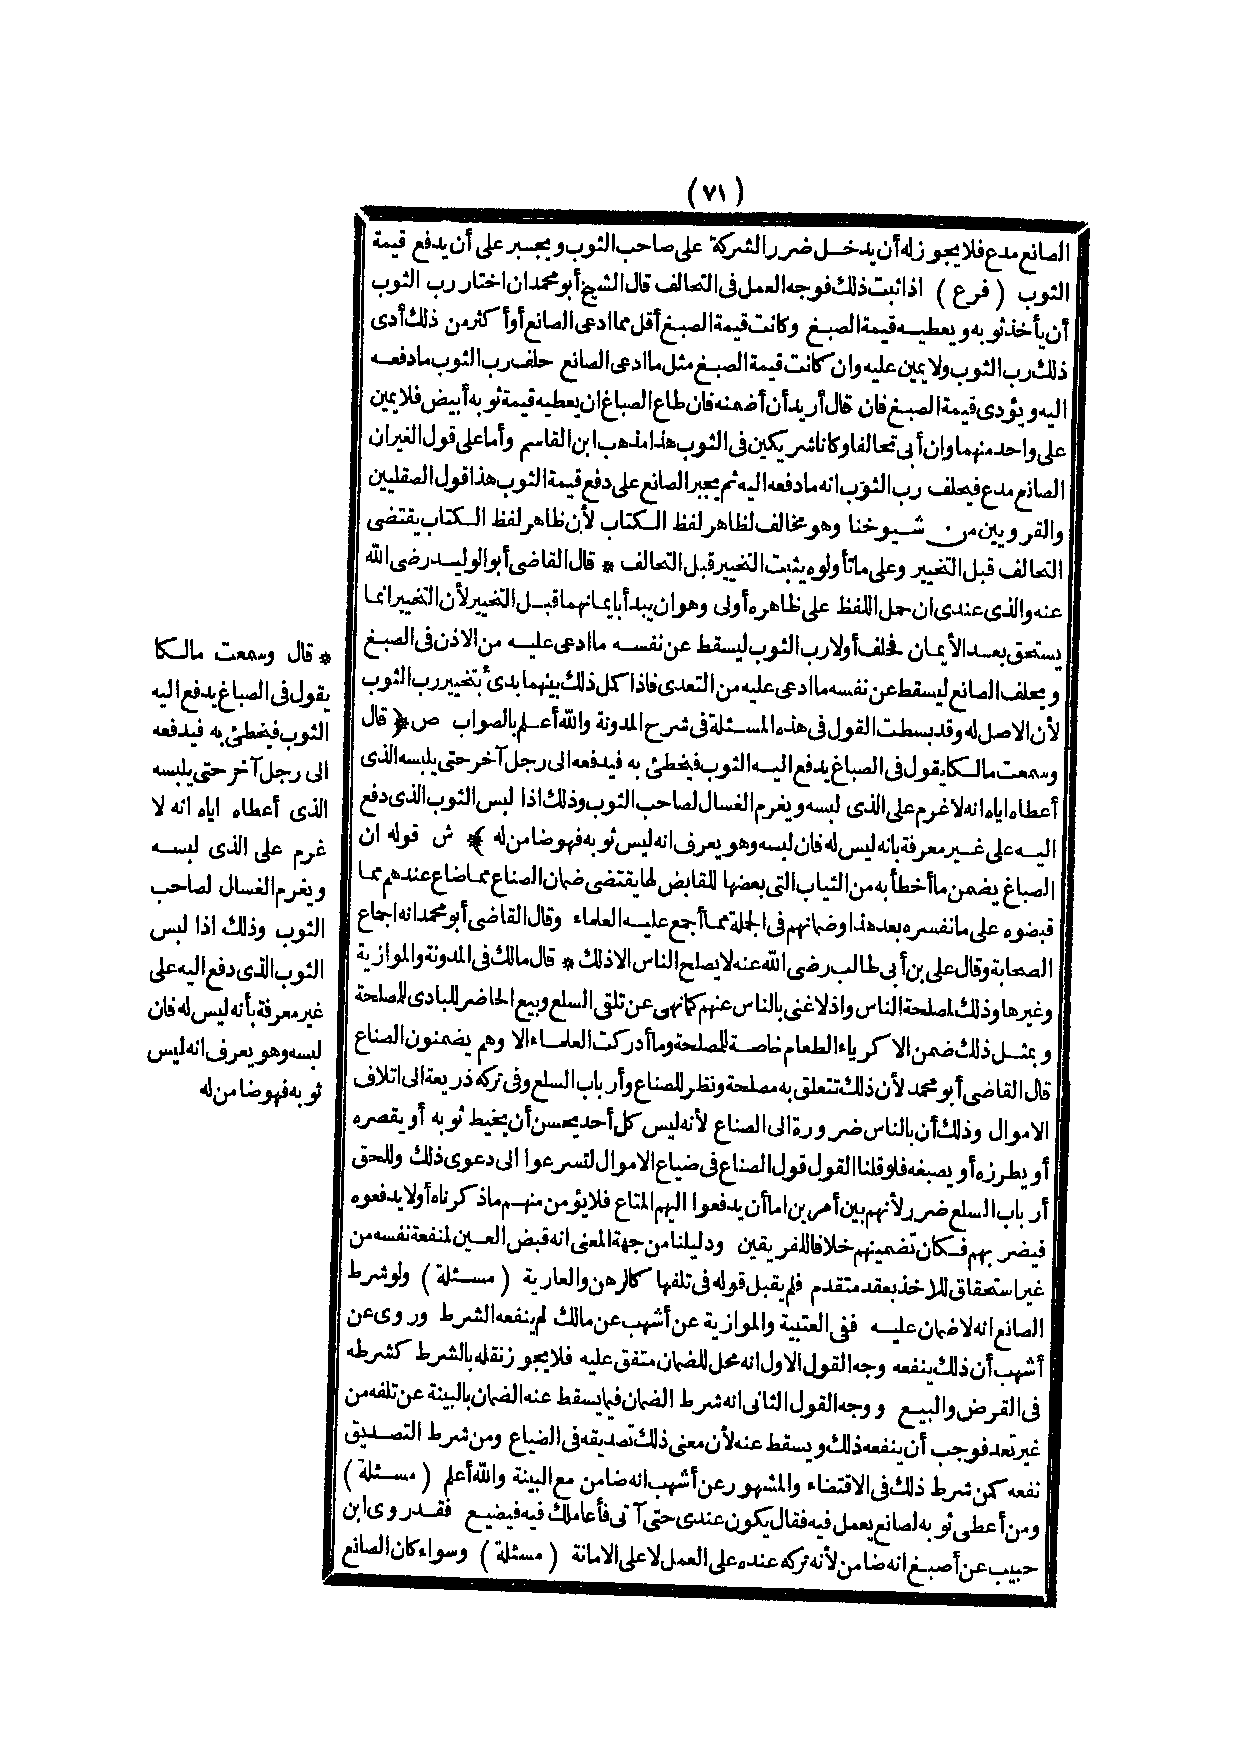 (٧١)
الصانع مدع فلا يجوز له أن يدخل ضرر الشركة على صاحب الثوب ويجبر على أن يدفع قيمة
الثوب (فرع) اذا ثبت ذلك فوجه العمل فى التحالف قال الشيخ أبو محمد ان اختار رب الثوب
أن يأخذ ثوبه ويعطيه قيمة الصبغ وكانت قيمة الصبغ أقل مما ادعى الصانع أو أكثر من ذلك أدى
ذلك رب الثوب ولا يمين عليه وان كانت قيمة الصبغ مثل ما ادعى الصانع حلف رب الثوب ما دفعه
اليه ويؤدى قيمة الصبغ فان قال أريد أن أضمنه فان طاع الصباغ ان يعطيه قيمة ثوبه أبيض فلا يمين
على واحد منهما وان أبى تحالفا وكانا شريكين فى الثوب هذا مذهب ابن القاسم وأما على قول الغير ان
الصانع مدع فيحلف رب الثوب انه ما دفعه اليه ثم يجبر الصانع على دفع قيمة الثوب هذا قول الصقليين
والقرويين من شيوخنا وهو مخالف لظاهر لفظ الكتاب لأن ظاهر لفظ الكتاب يقتضى
التحالف قبل التخيير وعلى ما تأولوه يثبت التخيير قبل التحالف * قال القاضى أبو الوليد رضى الله
عنه والذى عندى ان حمل اللفظ على ظاهره أولى وهو ان يبدأ بأيمانهما قبل التخيير لأن التخيير انما
يستحق بعد الأيمان فحلف أولا رب الثوب ليسقط عن نفسه ما ادعى عليه من الاذن فى الصبغ
ويحلف الصانع ليسقط عن نفسه ما ادعى عليه من التعدى فاذا كل ذلك بينهما بدئ بتخيير رب الثوب
لأن الاصل له وقد بسطت القول فى هذه المسئلة فى شرح المدونة والله أعلم بالصواب ص ﴿ قال
وسمعت مالكا يقول فى الصباغ يدفع اليه الثوب فيخطئ به فيدفعه الى رجل آخر حتى يلبسه الذى
أعطاه اياه انه لا غرم على الذى لبسه ويغرم الغسال لصاحب الثوب وذلك اذا لبس الثوب الذى دفع
اليه على غير معرفة بانه ليس له فان لبسه وهو يعرف انه ليس ثوبه فهو ضامن له ﴾ ش قوله ان
الصباغ يضمن ما أخطأ به من الثياب التى بعضها للقابض لها يقتضى ضمان الصناع مما ضاع عندهم مما
قبضوه على ما نفسره بعد هذا وضمانهم فى الجملة مما أجمع عليه العلماء وقال القاضى أبو محمد انه اجماع
الصحابة وقال على بن أبى طالب رضى الله عنه لا يصلح الناس الا ذلك * قال مالك فى المدونة والموازية
وغيرها وذلك لمصلحة الناس واذ لا غنى بالناس عنهم كما نهى عن تلقى السلع وبيع الحاضر للبادى للمصلحة
وبمثل ذلك ضمن الاكرياء الطعام خاصة للمصلحة وما أدركت العلماء الا وهم يضمنون الصناع
قال القاضى أبو محمد لأن ذلك تتعلق به مصلحة ونظر للصناع وأرباب السلع وفى تركه ذريعة الى اتلاف
الاموال وذلك أن بالناس ضرورة الى الصناع لأنه ليس كل أحد يحسن أن يخيط ثوبه أو يقصره
أو يطرزه أو يصبغه فلو قلنا القول قول الصناع فى ضياع الاموال لتسرعوا الى دعوى ذلك وللحق
أرباب السلع ضرر لأنهم بين أمرين اما أن يدفعوا اليهم المتاع فلا يؤمن منهم ما ذكرناه أو لا يدفعوه
فيضر بهم فكان تضمينهم خلافا للفريقين ودليلنا من جهة المعنى انه قبض العين لمنفعة نفسه من
غير استحقاق للاخذ بعقد متقدم فلم يقبل قوله فى تلفها كالرهن والعارية (مسئلة) ولو شرط
الصانع انه لا ضمان عليه ففى العتبية والموازية عن أشهب عن مالك لم ينفعه الشرط وروى عن
أشهب أن ذلك ينفعه وجه القول الاول انه محل للضمان متفق عليه فلا يجوز نقله بالشرط كشرطه
فى القرض والبيع ووجه القول الثانى انه شرط الضمان فيما يسقط عنه الضمان بالبينة عن تلفه من
غير تعد فوجب أن ينفعه ذلك ويسقط عنه لأن معنى ذلك تصديقه فى الضياع ومن شرط التصديق
نفعه كمن شرط ذلك فى الاقتضاء والمشهور عن أشهب انه ضامن مع البينة والله أعلم (مسئلة)
ومن أعطى ثوبه لصانع يعمل فيه فقال يكون عندى حتى آتى فأعاملك فيه فيضيع فقد روى ابن
حبيب عن أصبغ انه ضامن لأنه تركه عنده على العمل لا على الامانة (مسئلة) وسواء كان الصانع
* قال وسمعت مالكا
يقول فى الصباغ يدفع اليه
الثوب فيخطئ به فيدفعه
الى رجل آخر حتى يلبسه
الذى أعطاه اياه انه لا
غرم على الذى لبسه
ويغرم الغسال لصاحب
الثوب وذلك اذا لبس
الثوب الذى دفع اليه على
غير معرفة بأنه ليس له فان
لبسه وهو يعرف انه ليس
ثوبه فهو ضامن له